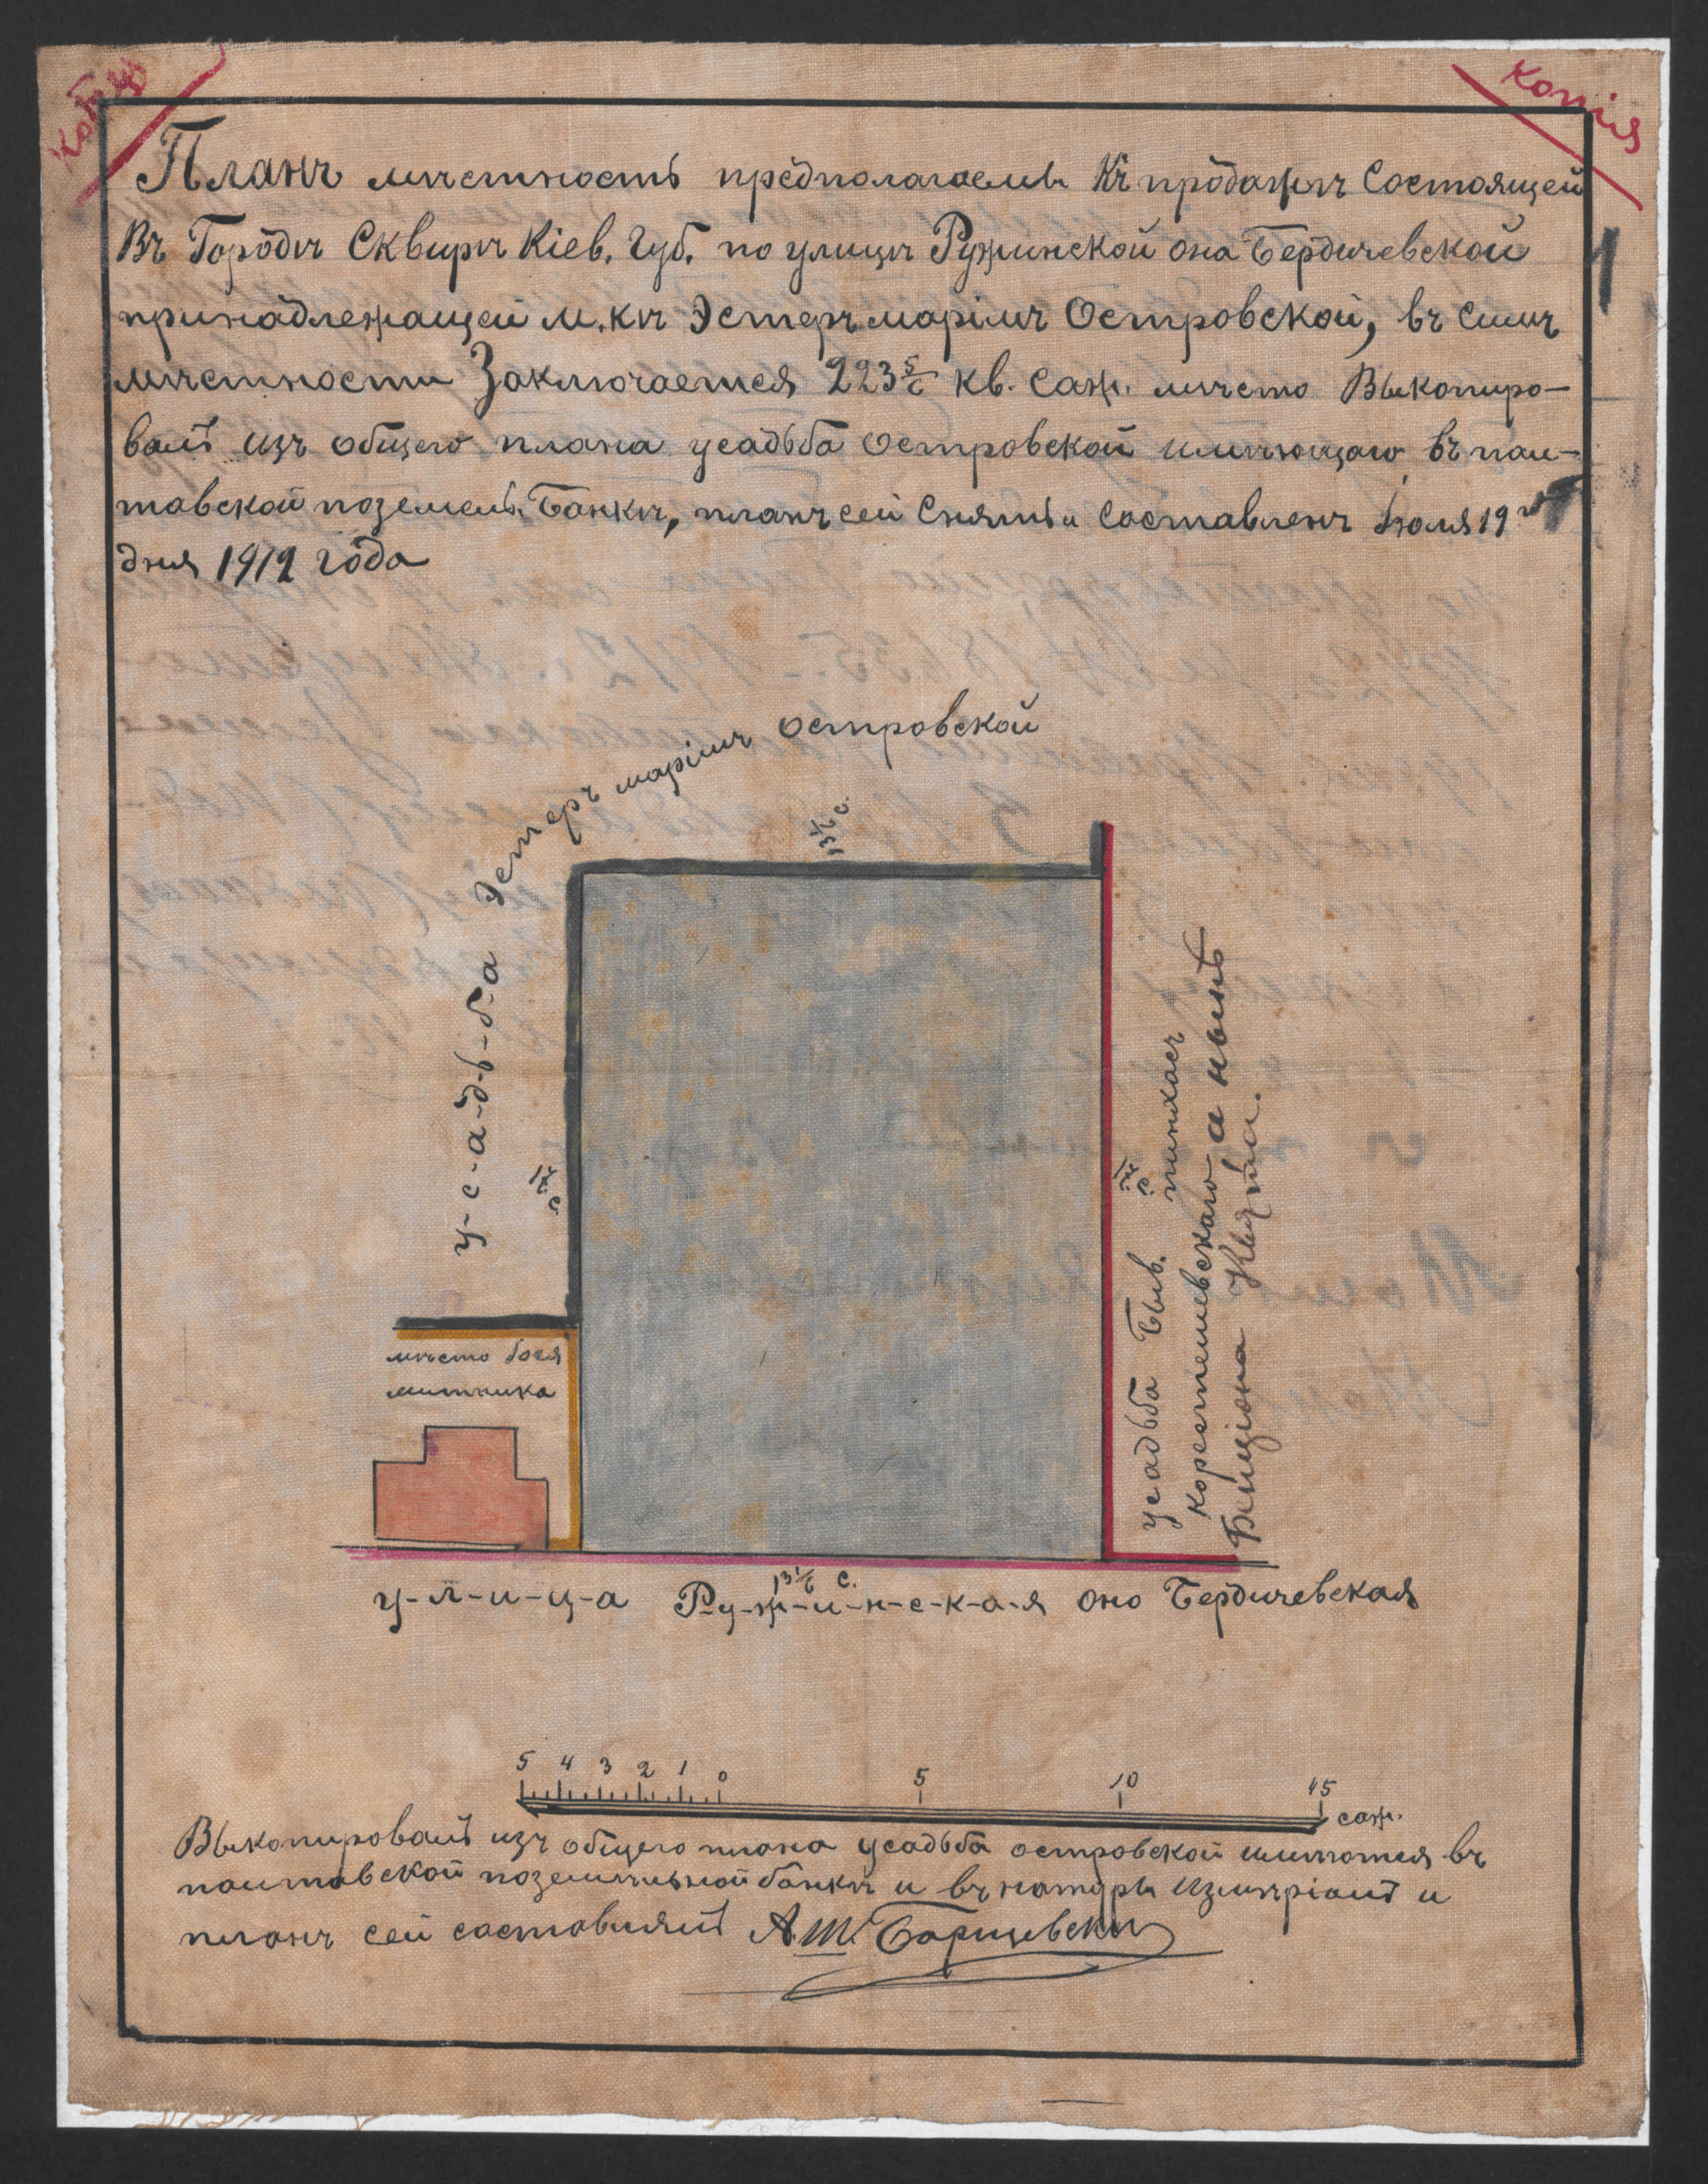 Копія
Копія
Планъ мѣстность предполагаемъ Къ продажѣ Состоящей
Въ Городѣ Сквирѣ Кіев. Губ. по улицѣ Ружинской она Бердичевской
принадлежащей М.кѣ Эстеръ маріимъ Островской, въ Симъ
мѣстности Заключается 223 5/6 кв. Саж. мѣсто Выкопиро-
валъ изъ общего плана усадьба Островской имѣющаго въ пал-
тавской поземель. Банкѣ, планъ сей Снять и Составленъ Іюля 19го
дня 1912 года
у-с-а-д-ь-б-а Эстеръ маріимъ Островской
13 1/6 с.
17 с.
17 с.
усадьба Быв. пинхасъ
коростешевскаго а нынѣ
Бенціона Квятн.
мѣсто боея
митника
13 1/6 с.
у-л-и-ц-а Р-у-ж-и-н-с-к-а-я оно Бердичевская
5 4 3 2 1 0 5 10 15 саж.
Выкопировалъ изъ общего плана усадьба островской имѣются въ
палтавской поземѣльной банкѣ и въ натурѣ Измѣріалъ и
планъ сей составлялъ А.Ш. Борщевски